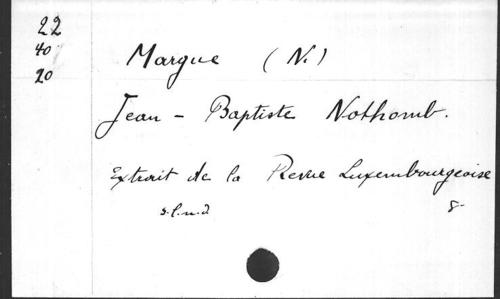 22
40
20
Margue (N.)
Jean - Baptiste Nothomb.
Extrait de la Revue Luxembourgeoise
s.l.n.d 8-